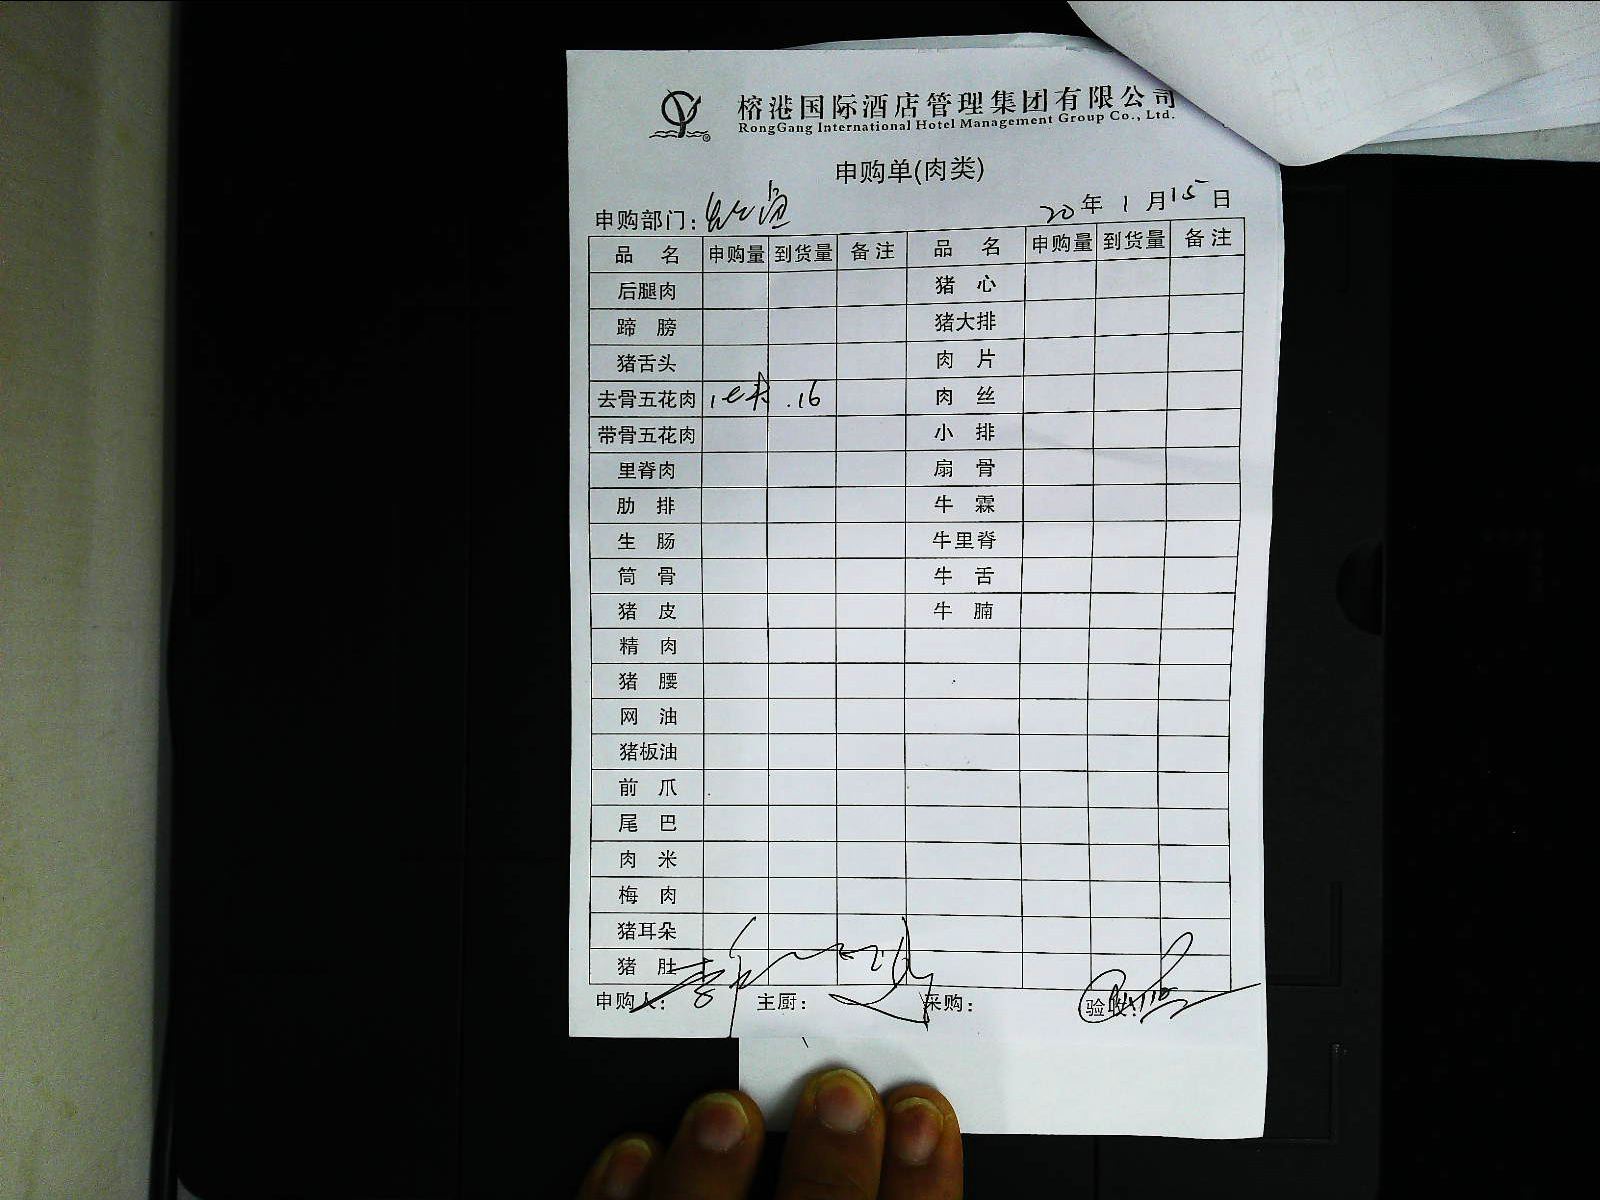 榕港国际酒店管理集团有限公司
RongGang International Hotel Management Group Co., Ltd.
申购单(肉类)
申购部门：
20年 1 月 15 日
品 名 申购量 到货量 备注 品 名 申购量 到货量 备注
后腿肉 猪 心
蹄 膀 猪大排
猪舌头 肉 片
去骨五花肉 .16 肉 丝
带骨五花肉 小 排
里脊肉 扇 骨
肋 排 牛 霖
生 肠 牛里脊
筒 骨 牛 舌
猪 皮 牛 腩
精 肉
猪 腰
网 油
猪板油
前 爪
尾 巴
肉 米
梅 肉
猪耳朵
猪 肚
申购人： 主厨： 采购： 验收：